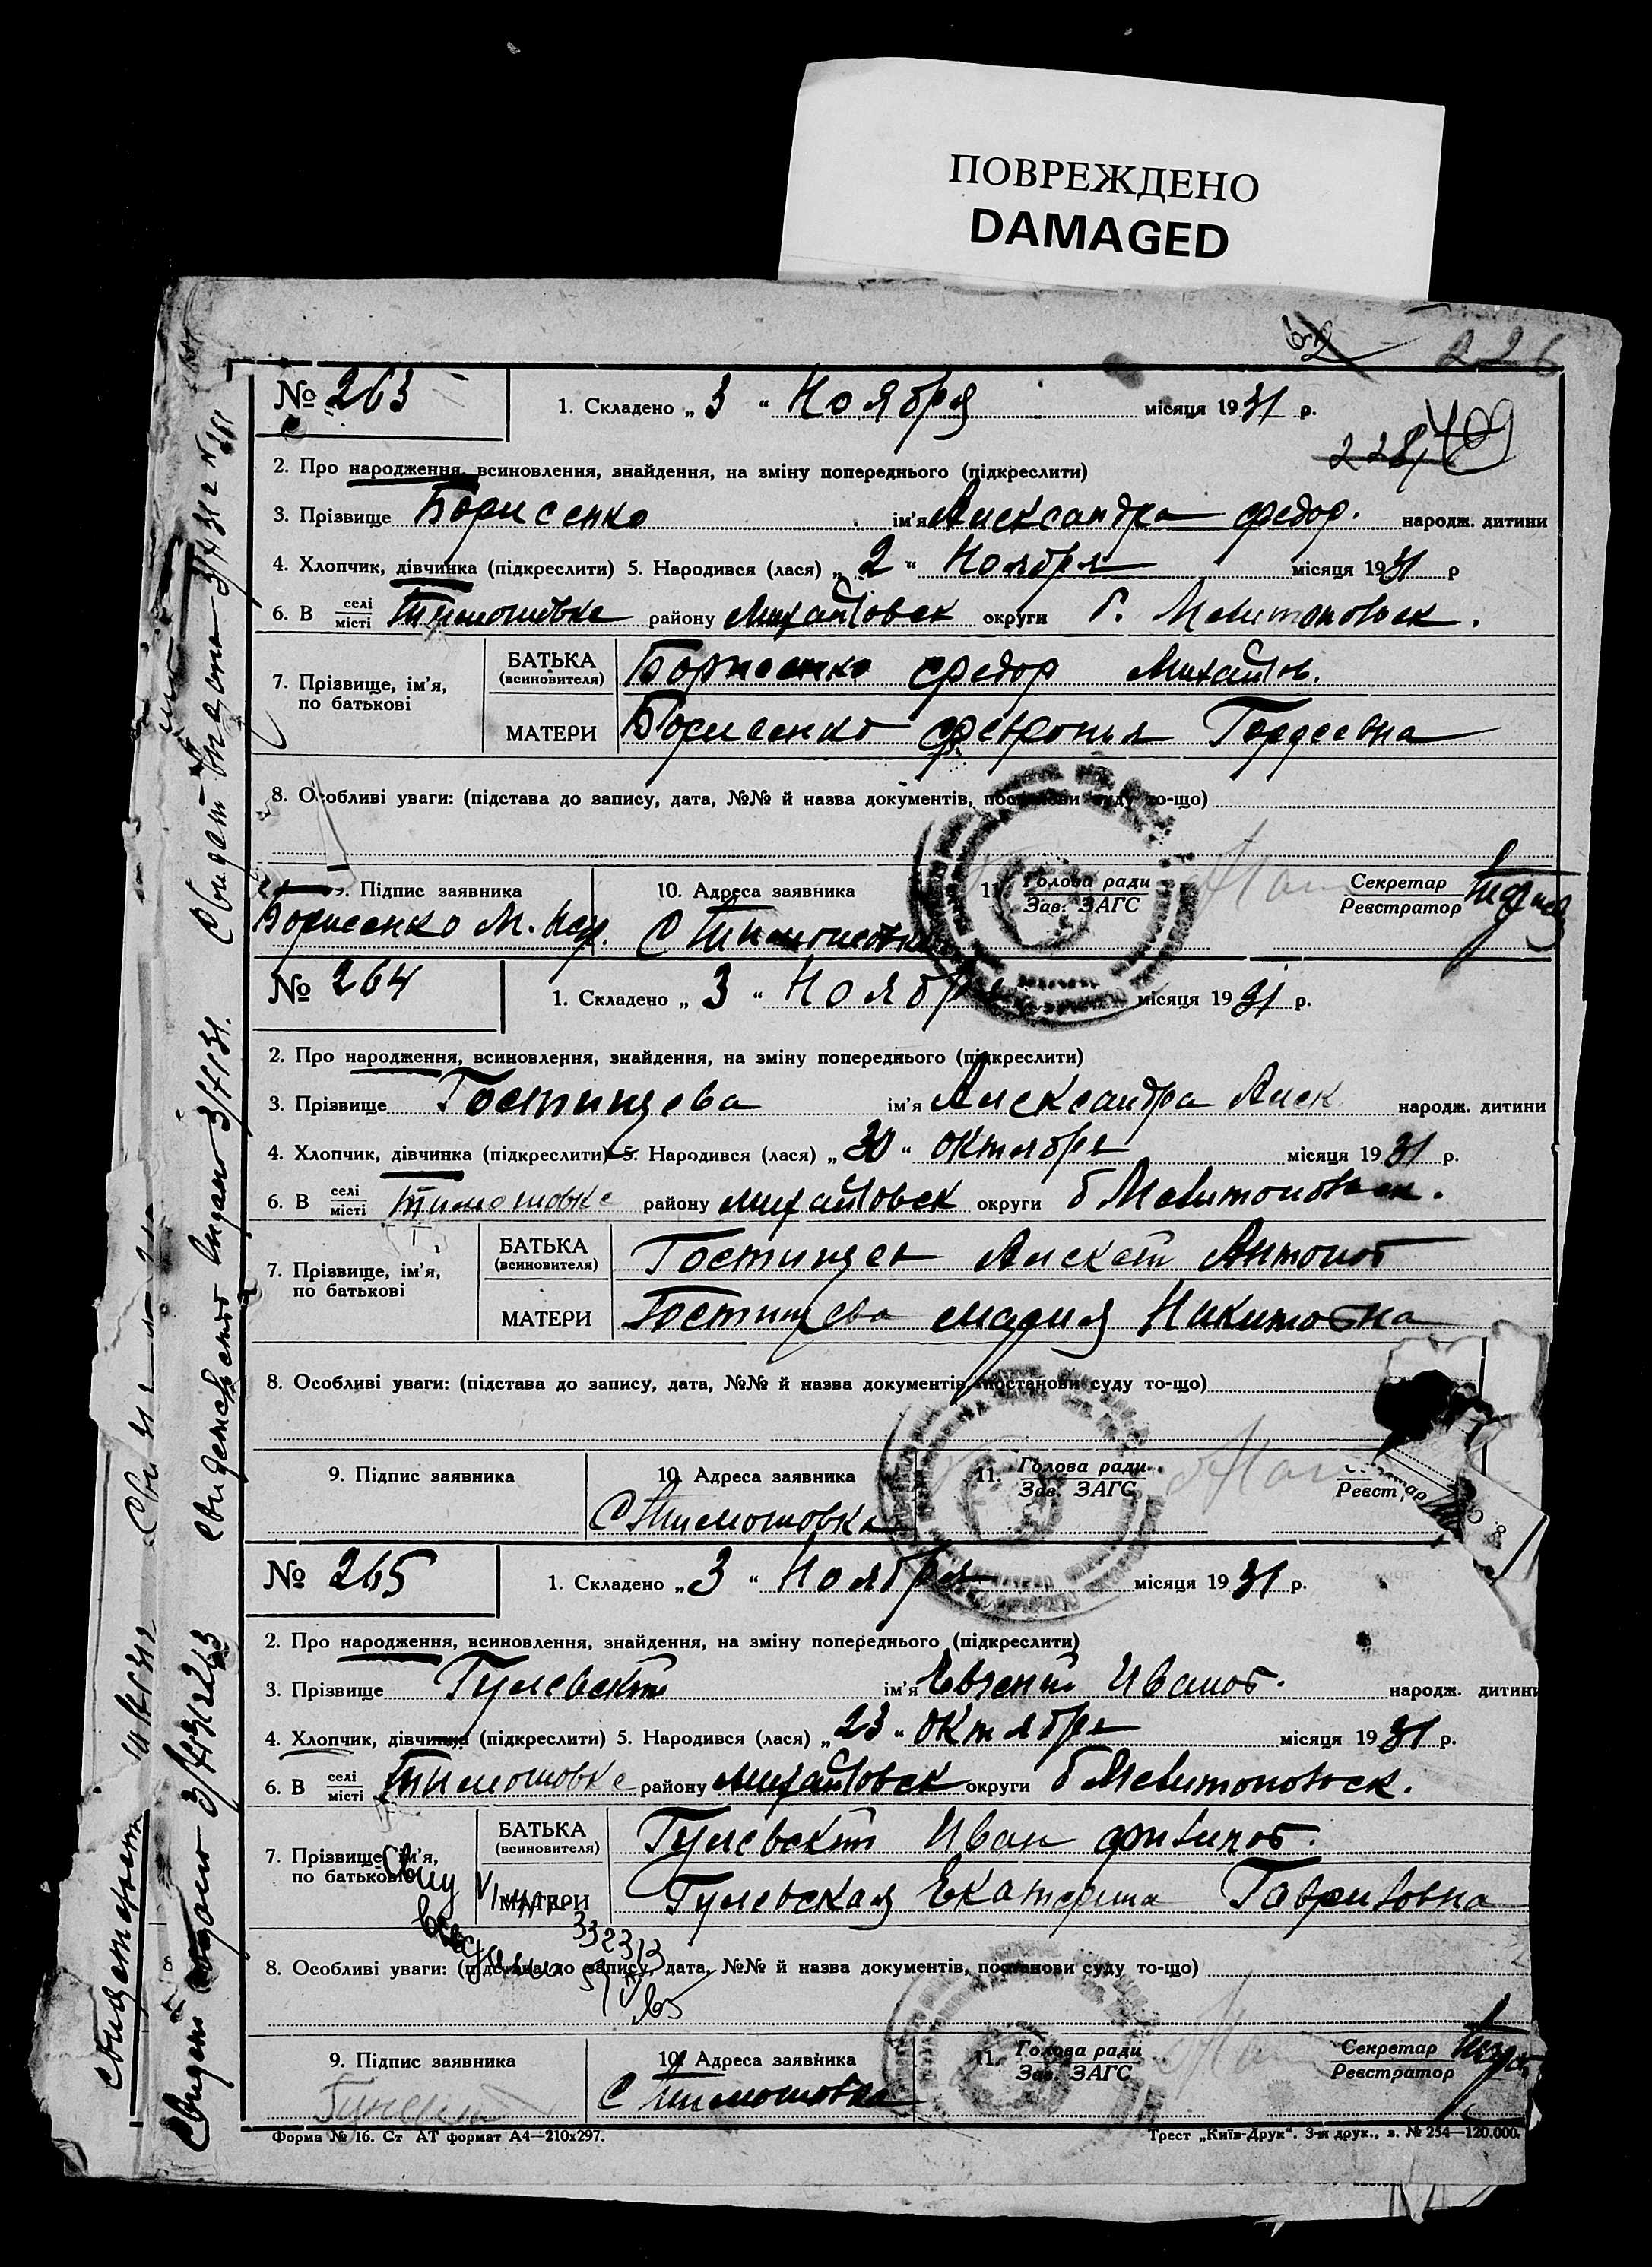 ПОВРЕЖДЕНО
DAMAGED
226
228 409
№ 263
1. Складено „ 3 “ Ноября місяця 1931 р.
2. Про народження, всиновлення, знайдення, на зміну попереднього (підкреслити)
3. Прізвище Борисенко ім'я Александра Федор. народж. дитини
4. Хлопчик, дівчинка (підкреслити) 5. Народився (лася) „ 2 “ Ноября місяця 1931 р
6. В селі місті Тимошовке району Михайловск округи б. Мелитопольск.
7. Прізвище, ім'я, по батькові
БАТЬКА (всиновителя) Борисенко Федор Михайлов.
МАТЕРИ Борисенко Февронья Гордеевна
8. Особливі уваги: (підстава до запису, дата, №№ й назва документів, постанови суду то-що)
9. Підпис заявника 10. Адреса заявника 11. Голова ради Зав. ЗАГС Секретар Реєстратор
Борисенко М. С Тимошовка
№ 264
1. Складено „ 3 “ Ноября місяця 1931 р.
2. Про народження, всиновлення, знайдення, на зміну попереднього (підкреслити)
3. Прізвище Гостищева ім'я Александра Алек народж. дитини
4. Хлопчик, дівчинка (підкреслити) 5. Народився (лася) „ 30 “ октября місяця 1931 р.
6. В селі місті Тимошовке району Михайловск округи б Мелитопольск.
7. Прізвище, ім'я, по батькові
БАТЬКА (всиновителя) Гостищев Алексей Антонов
МАТЕРИ Гостищева Мария Никитовна
8. Особливі уваги: (підстава до запису, дата, №№ й назва документів, постанови суду то-що)
9. Підпис заявника 10. Адреса заявника 11. Голова ради Зав. ЗАГС Реєст
С Тимошовка
№ 265
1. Складено „ 3 “ Ноября місяця 1931 р.
2. Про народження, всиновлення, знайдення, на зміну попереднього (підкреслити)
3. Прізвище Гулевский ім'я Евгений Иванов. народж. дитини
4. Хлопчик, дівчинка (підкреслити) 5. Народився (лася) „ 23 “ октября місяця 1931 р.
6. В селі місті Тимошовке району Михайловск округи б Мелитопольск.
7. Прізвище, ім'я, по батькові
БАТЬКА (всиновителя) Гулевский Иван Филипов.
МАТЕРИ Гулевская Екатерина Гавриловна
8. Особливі уваги: (підстава до запису, дата, №№ й назва документів, постанови суду то-що)
9. Підпис заявника 10. Адреса заявника 11. Голова ради Зав. ЗАГС Секретар Реєстратор
С Тимошовка
Форма № 16. Ст АТ формат А4—210х297. Трест „Київ-Друк“. 3-я друк., з. № 254—120.000.